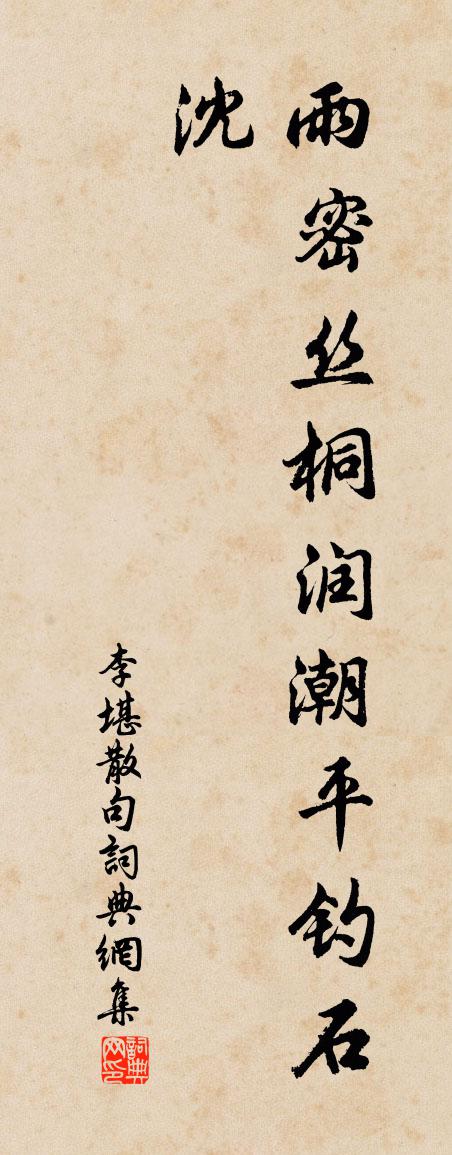 雨密丝桐润潮平钓石
沈
李堪散句詞典網集
詞典网印